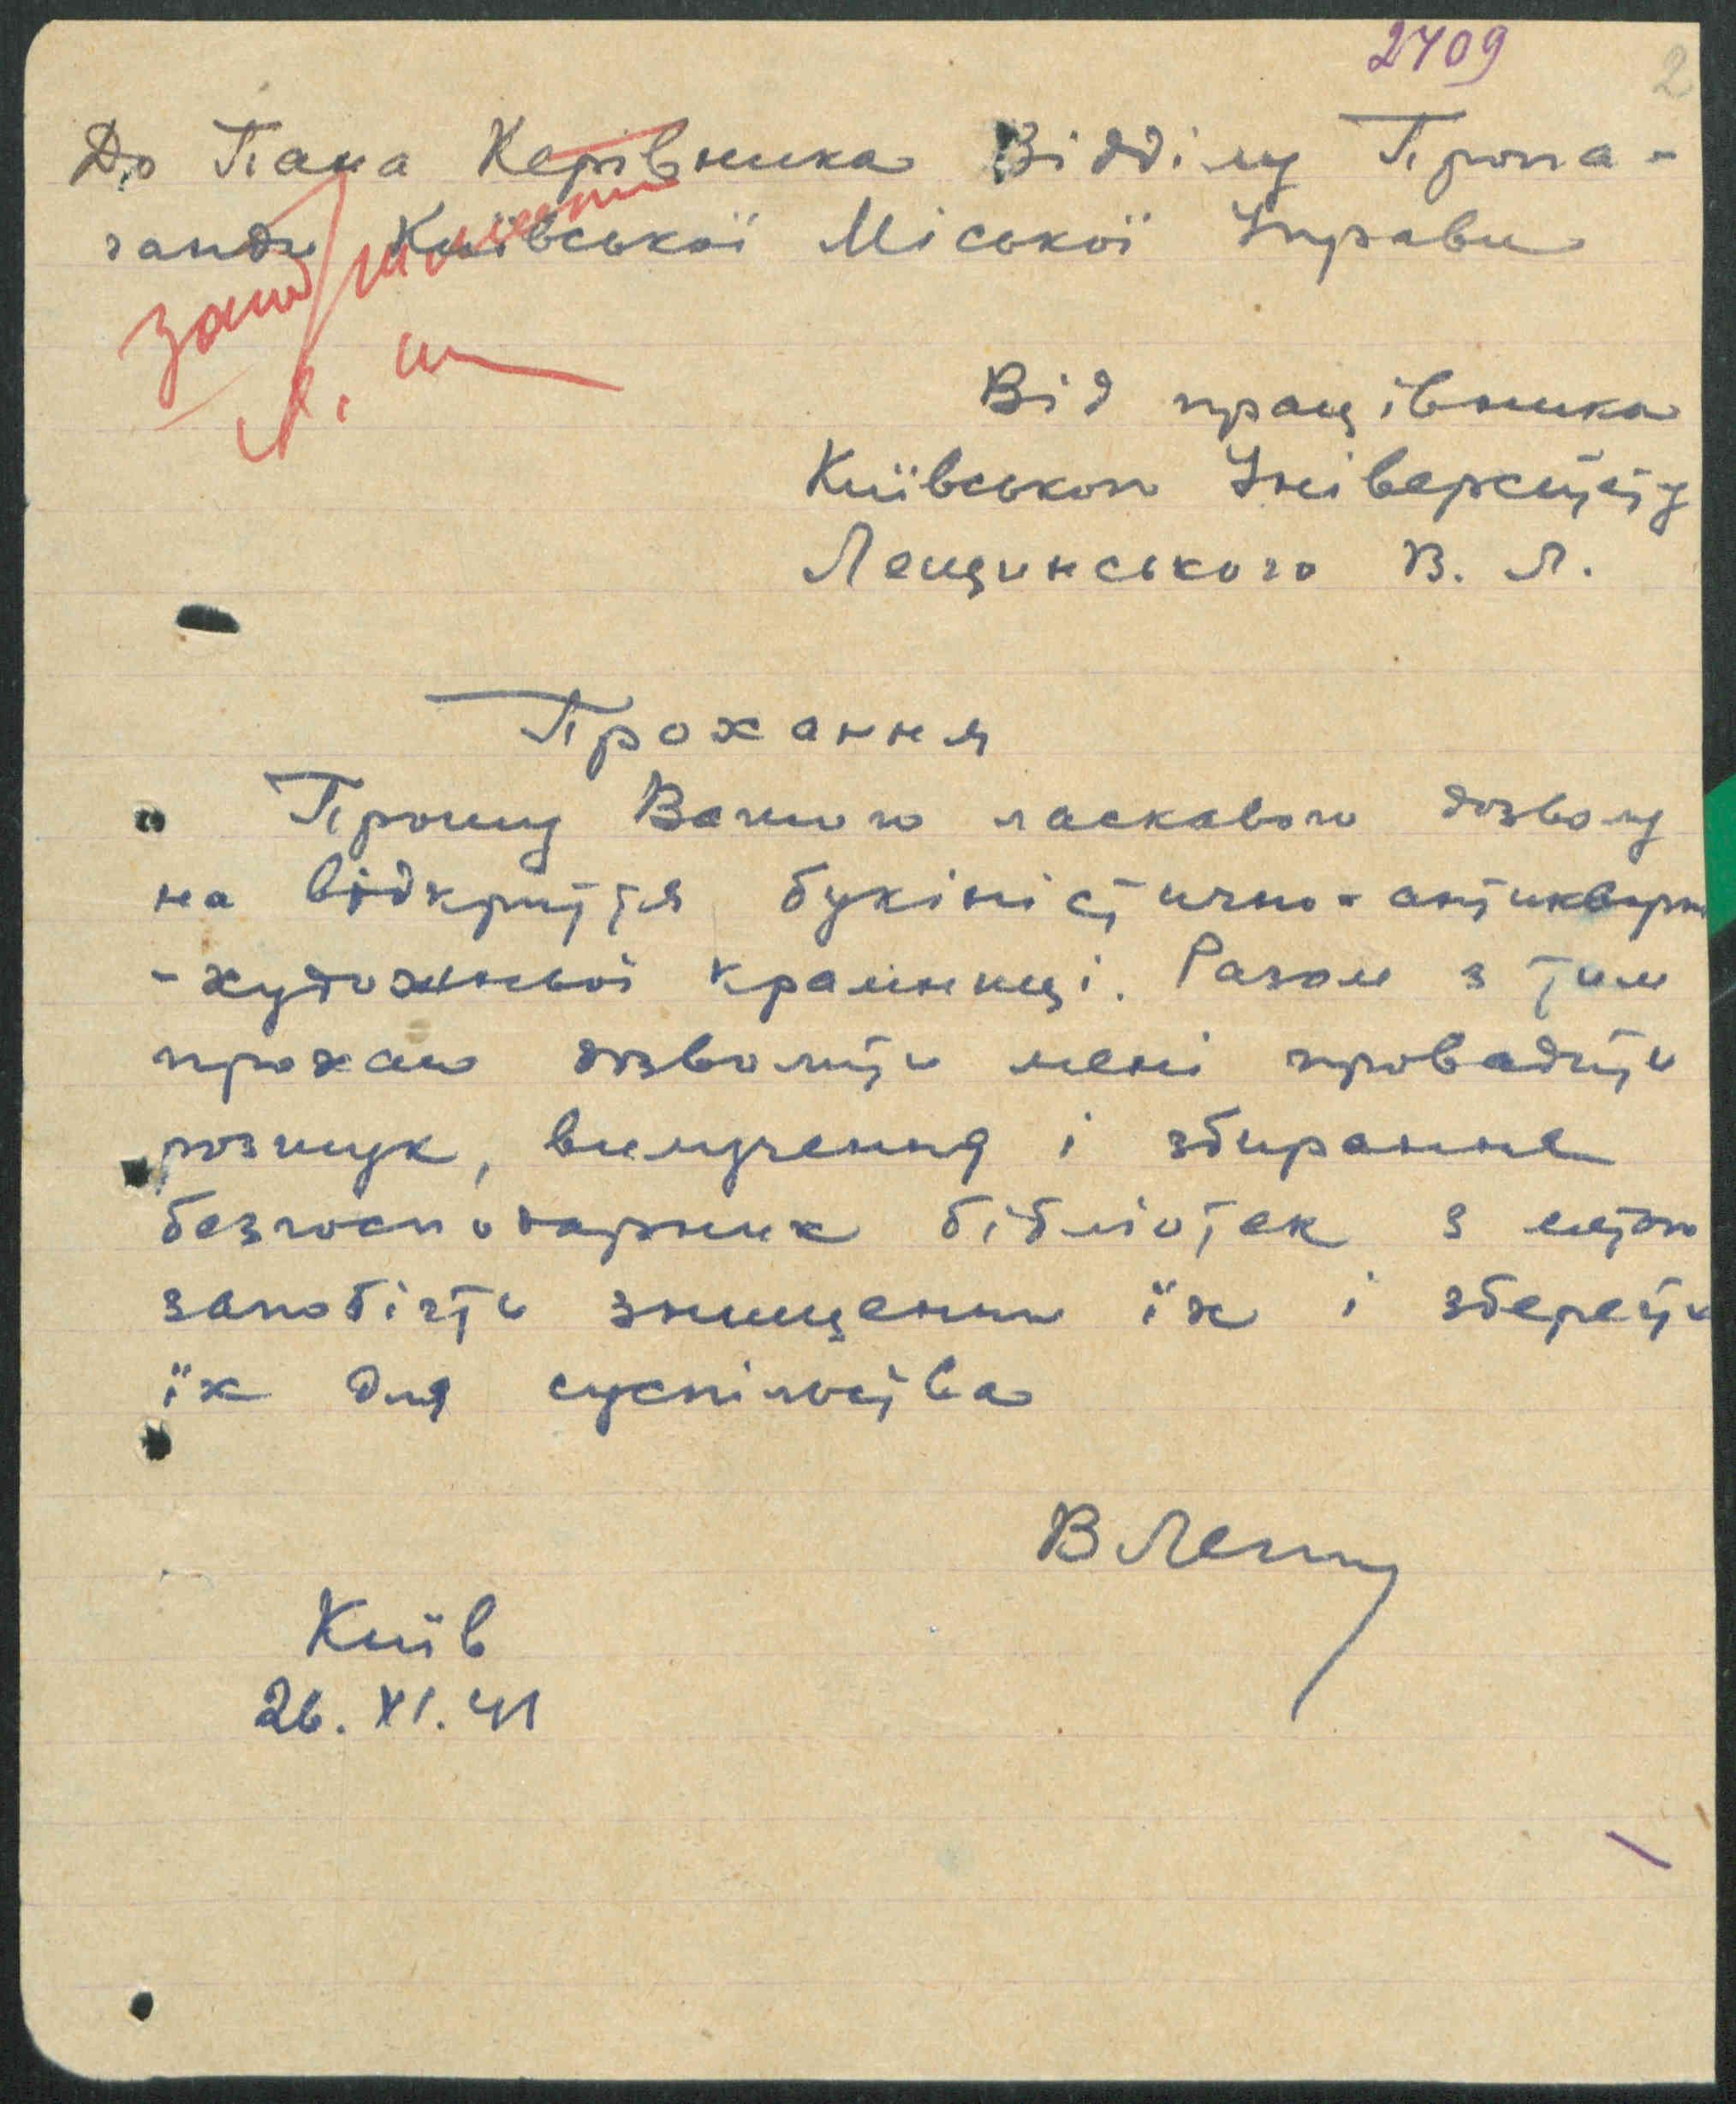 2409
2
До Пана Керівника Відділу Пропа-
ганди Київської Міської Управи
Від працівника
Київського Університету
Лещинського В. Л.
Прохання
Прошу Вашого ласкавого дозволу
на відкриття букіністично-антикварно
-художньої крамниці. Разом з тим
прохаю дозволити мені провадити
розшук, вилучення і збирання
безгосподарних бібліотек з метою
запобігти знищенню їх і зберегти
їх для суспільства
В Лещ
Київ
26. XI. 41